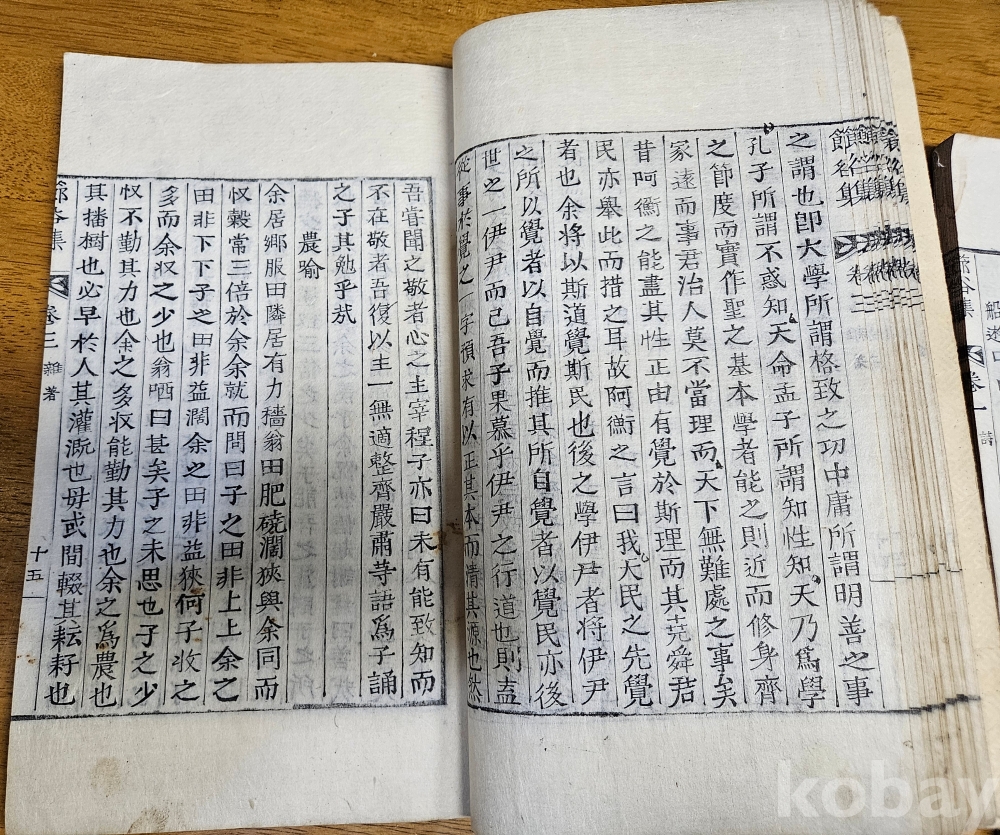 之謂也卽大學所謂格致之功中庸所謂明善之事
孔子所謂不惑知天命孟子所謂知性知天乃爲學
之節度而實作聖之基本學者能之則近而修身齊
家遠而事君治人莫不當理而天下無難處之事矣
昔阿衡之能盡其性正由有覺於斯理而其堯舜君
民亦擧此而措之耳故阿衡之言曰我天民之先覺
者也余將以斯道覺斯民也後之學伊尹者將伊尹
之所以覺者以自覺而推其所自覺者以覺民亦後
世之一伊尹而已吾子果慕乎伊尹之行道也則盍
從事於覺之一字預求有以正其本而淸其源也然
吾甞聞之敬者心之主宰程子亦曰未有能致知而
不在敬者吾復以主一無適整齊嚴肅等語爲子誦
之子其勉乎哉
農喩
余居鄕服田隣居有力穡翁田肥磽濶狹與余同而
収穀常三倍於余余就而問曰子之田非上上余之
田非下下子之田非益濶余之田非益狹何子收之
多而余収之少也翁哂曰甚矣子之未思也子之少
収不勤其力也余之多収能勤其力也余之爲農也
其播樹也必早於人其灌漑也毋或間輟其耘耔也
卷三 雜著
十五
kobay